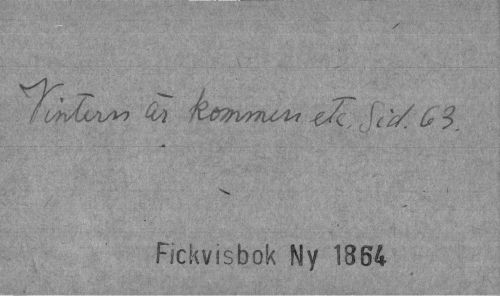 Vintern är kommen etc. Sid. 63.
Fickvisbok Ny 1864